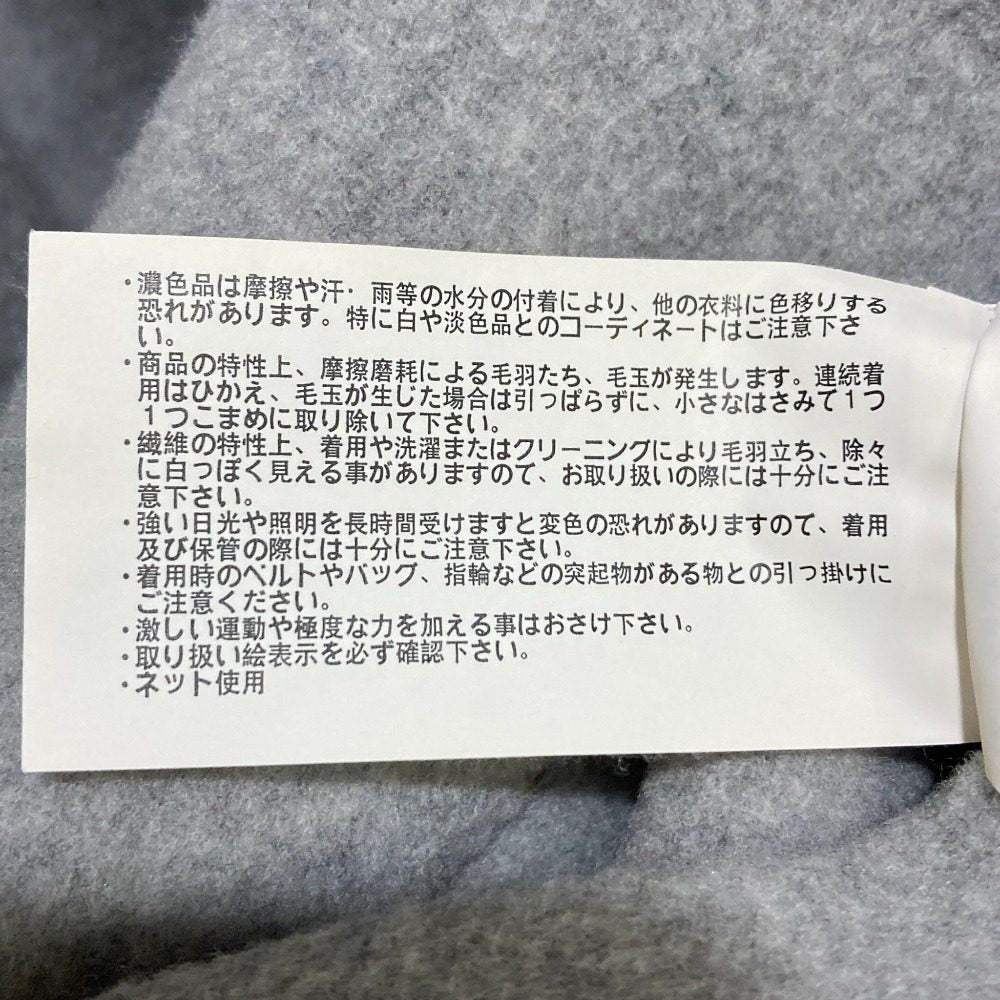 ・濃色品は摩擦や汗・雨等の水分の付着により、他の衣料に色移りする
恐れがあります。特に白や淡色品とのコーディネートはご注意下さ
い。
・商品の特性上、摩擦磨耗による毛羽たち、毛玉が発生します。連続着
用はひかえ、毛玉が生じた場合は引っぱらずに、小さなはさみて１つ
１つこまめに取り除いて下さい。
・繊維の特性上、着用や洗濯またはクリーニングにより毛羽立ち、除々
に白っぽく見える事がありますので、お取り扱いの際には十分にご注
意下さい。
・強い日光や照明を長時間受けますと変色の恐れがありますので、着用
及び保管の際には十分にご注意下さい。
・着用時のベルトやバッグ、指輪などの突起物がある物との引っ掛けに
ご注意ください。
・激しい運動や極度な力を加える事はおさけ下さい。
・取り扱い絵表示を必ず確認下さい。
・ネット使用